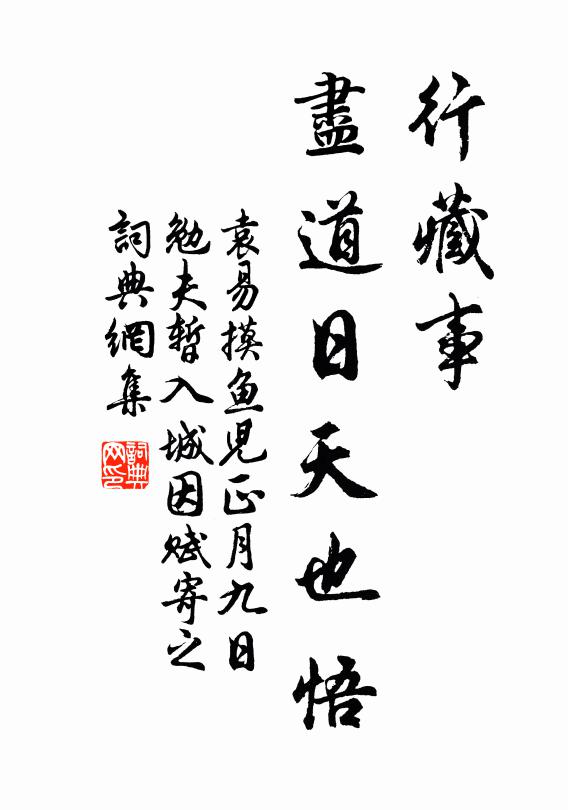 行藏事
盡道日天也悟
袁易摸鱼児正月九日
勉夫暫入城因赋寄之
詞典網集
詞典网印